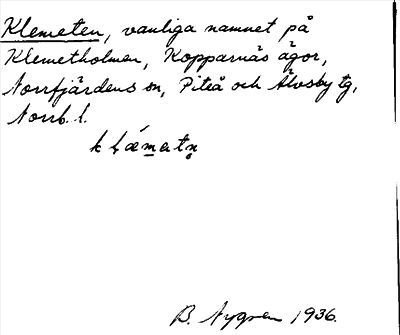 Klemeten, vanliga namnet på
Klemetholmen, Kopparnäs ägor,
Norrfjärdens sn, Piteå och Älvsby tg,
Norrb. l.
B. Nygren 1936.